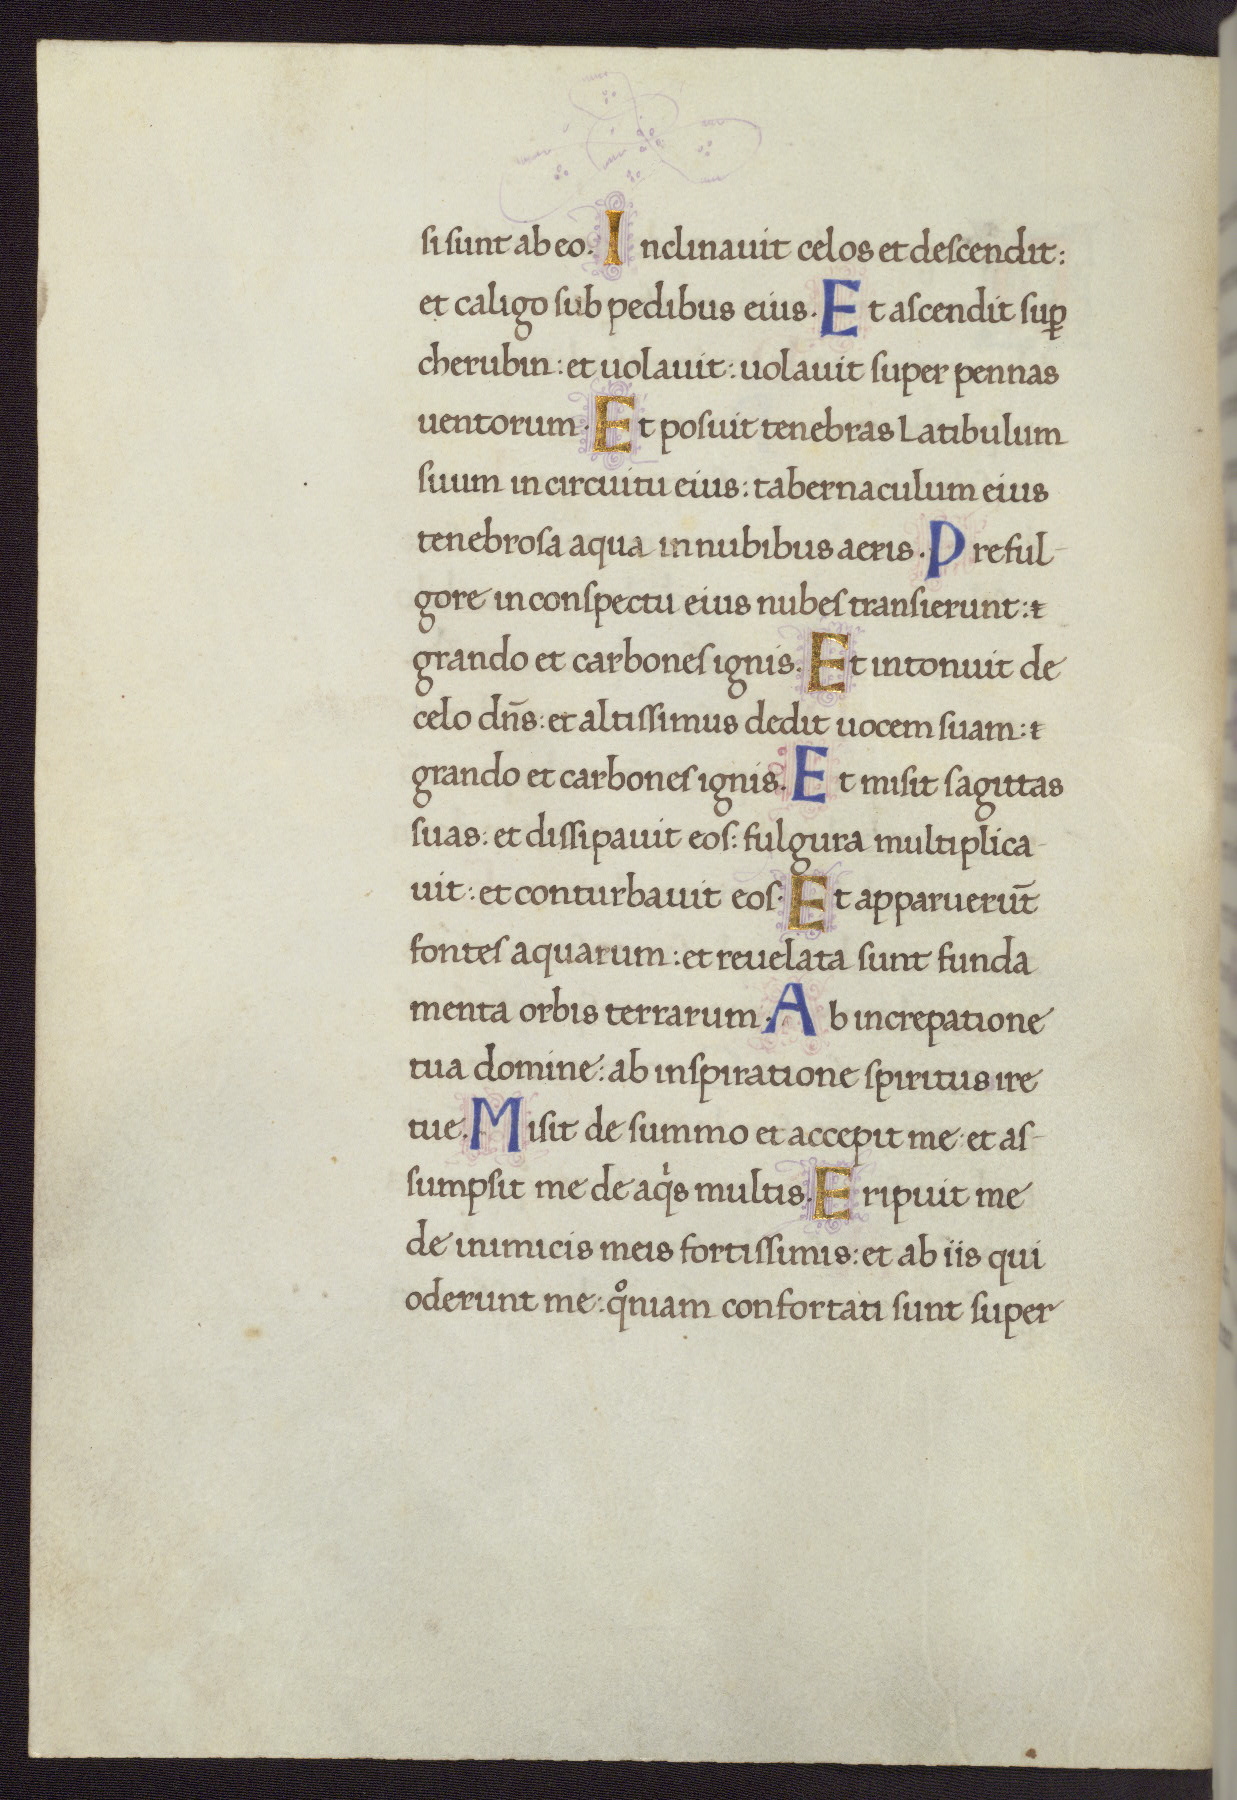 si sunt ab eo. Inclinauit celos et descendit:
et caligo sub pedibus eius. Et ascendit suꝑ
cherubin: et uolauit: uolauit super pennas
uentorum. Et posuit tenebras Latibulum
suum in circuitu eius: tabernaculum eius
tenebrosa aqua in nubibus aeris. Preful-
gore in conspectu eius nubes transierunt: ⁊
grando et carbones ignis. Et intonuit de
celo dn̄s: et altissimus dedit uocem suam: ⁊
grando et carbones ignis. Et misit sagittas
suas: et dissipauit eos: fulgura multiplica-
uit: et conturbauit eos. Et apparuerūt
fontes aquarum: et reuelata sunt funda
menta orbis terrarum. Ab increpatione
tua domine: ab inspiratione spiritus ire
tue. Misit de summo et accepit me: et as-
sumpsit me de aqͥs multis. Eripuit me
de inimicis meis fortissimis: et ab iis qui
oderunt me: qͦniam confortati sunt super